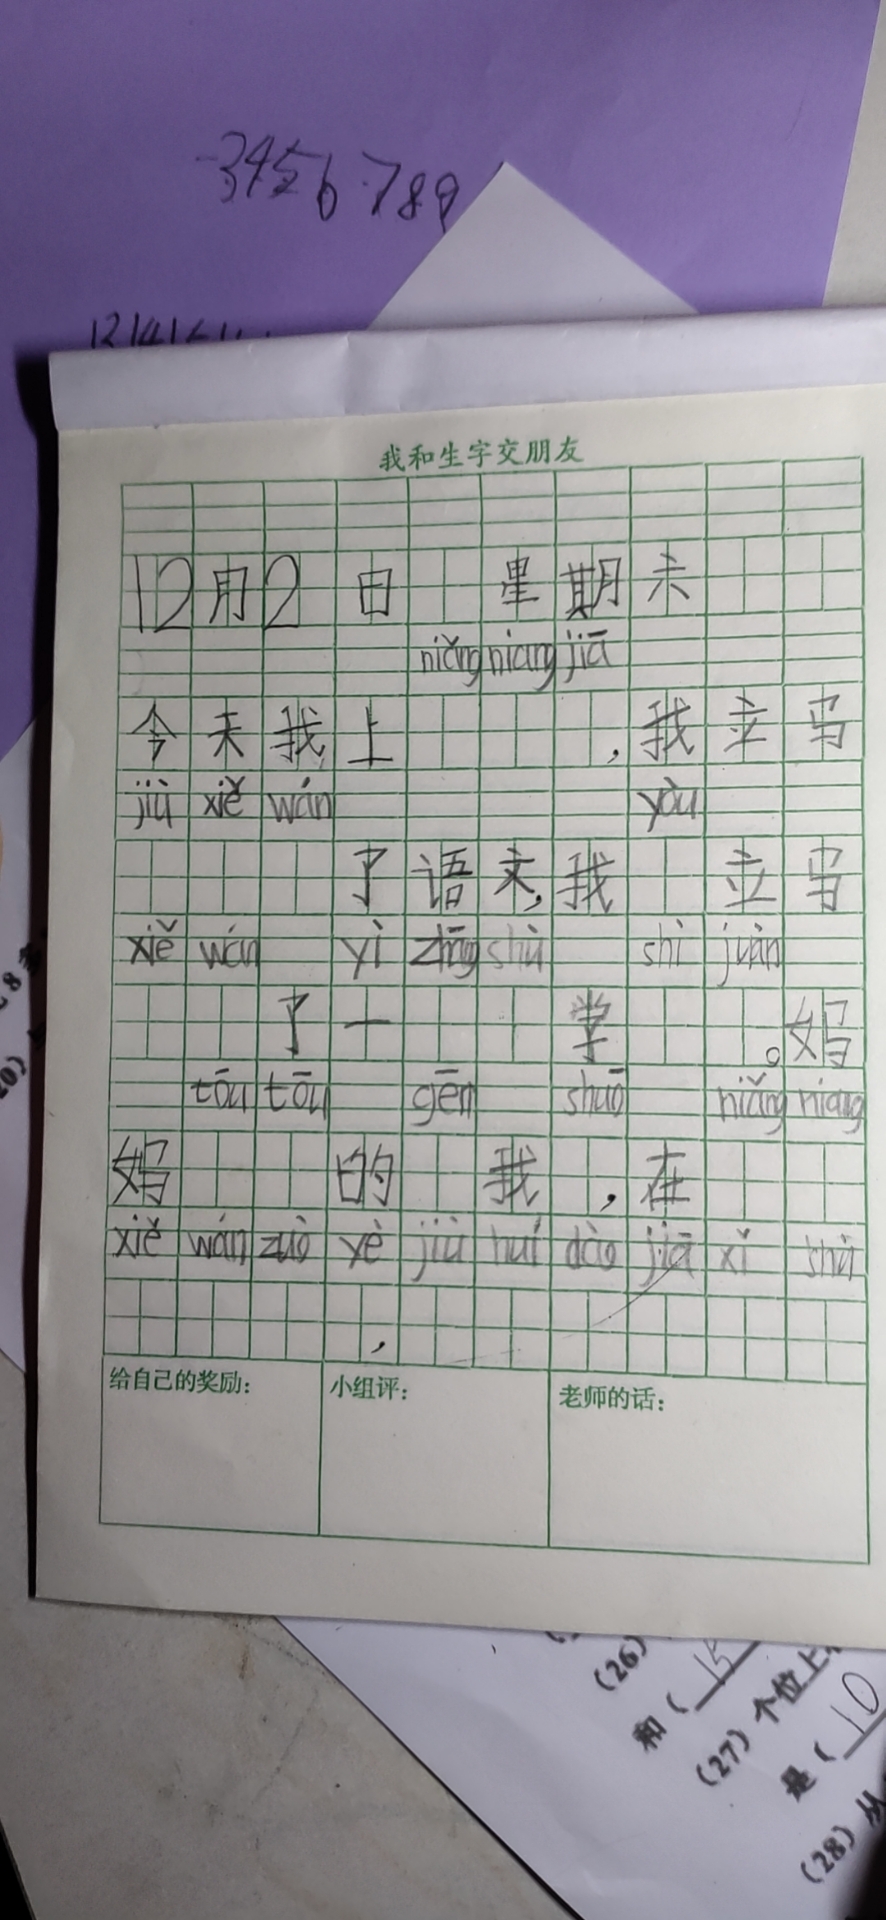 3456789
我和生字交朋友
12月2日 星期六
niǎng niang jiā
今天我上 ,我立马
jiù xiě wán yòu
了语文,我 立马
xiě wán yì zhāng shù shì juàn
了一 学 。妈
tōu tōu gēn shuō niǎng niang
妈 的 我 ,在
xiě wán zuò yè jiù huí dào jiā xǐ shù
,
给自己的奖励: 小组评: 老师的话:
(26)
和( 15
(27)个位上
是( 10
(28)从